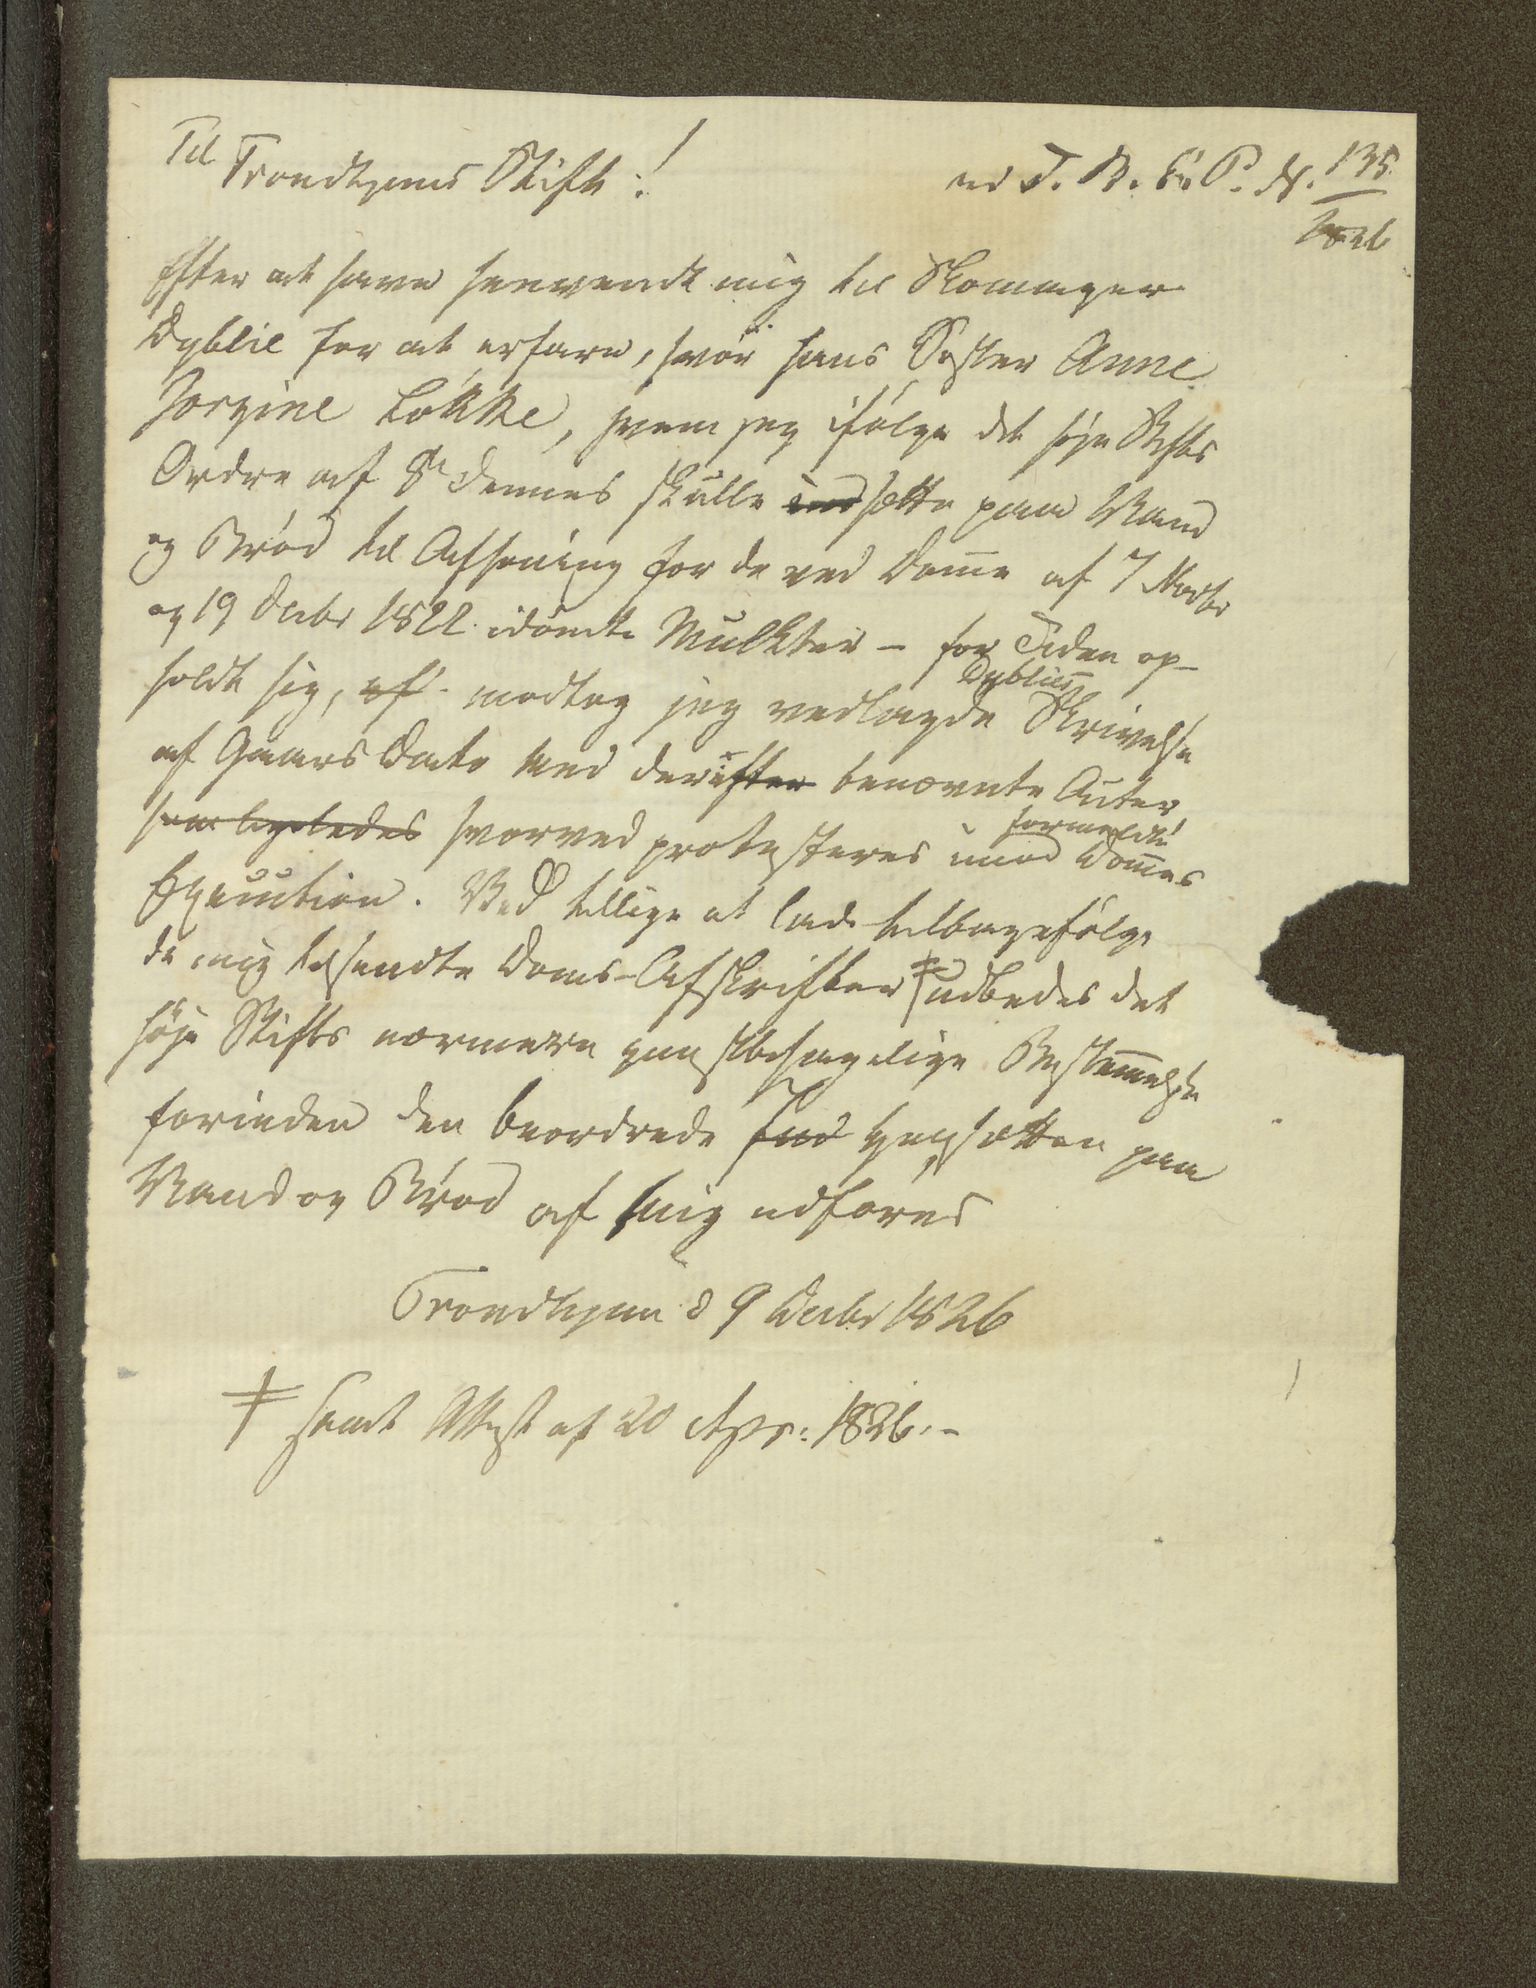 Til
Trondhjems Stift!
ad T. B. & P. N. 135
1826
Efter at have henvendt mig til Skomager
Dyblie for at erfare, hvor hans Søster Anne
Jorgine Løkke, hvem jeg ifølge det høje Stifts
Ordre af 8 dennes skulle ind sætte paa Vand
og Brød til Afsoning for de ved Domme af 7 Novbr
og 19 Decbr 1822 idømte Mulkter - for Tiden op-
holdt sig, af modtog jeg vedlagde Dyblies Skrivelse
af Gaars Dato med deri efter benævnte Acter
som ligeledes hvorved protesteres imod formeldte Dommes
Execution. Ved tillige at lade tilbagefølge
de mig tilsendte Doms-Afskrifter ǂ udbedes det
høje Stifts nærmere gunstbehagelige Bestemmelse
forinden den beordrede Ind Hensætten paa
Vand og Brød af mig udføres
Trondhjem d 9 Decbr 1826
ǂ samt Attest af 20 Apr: 1826.-